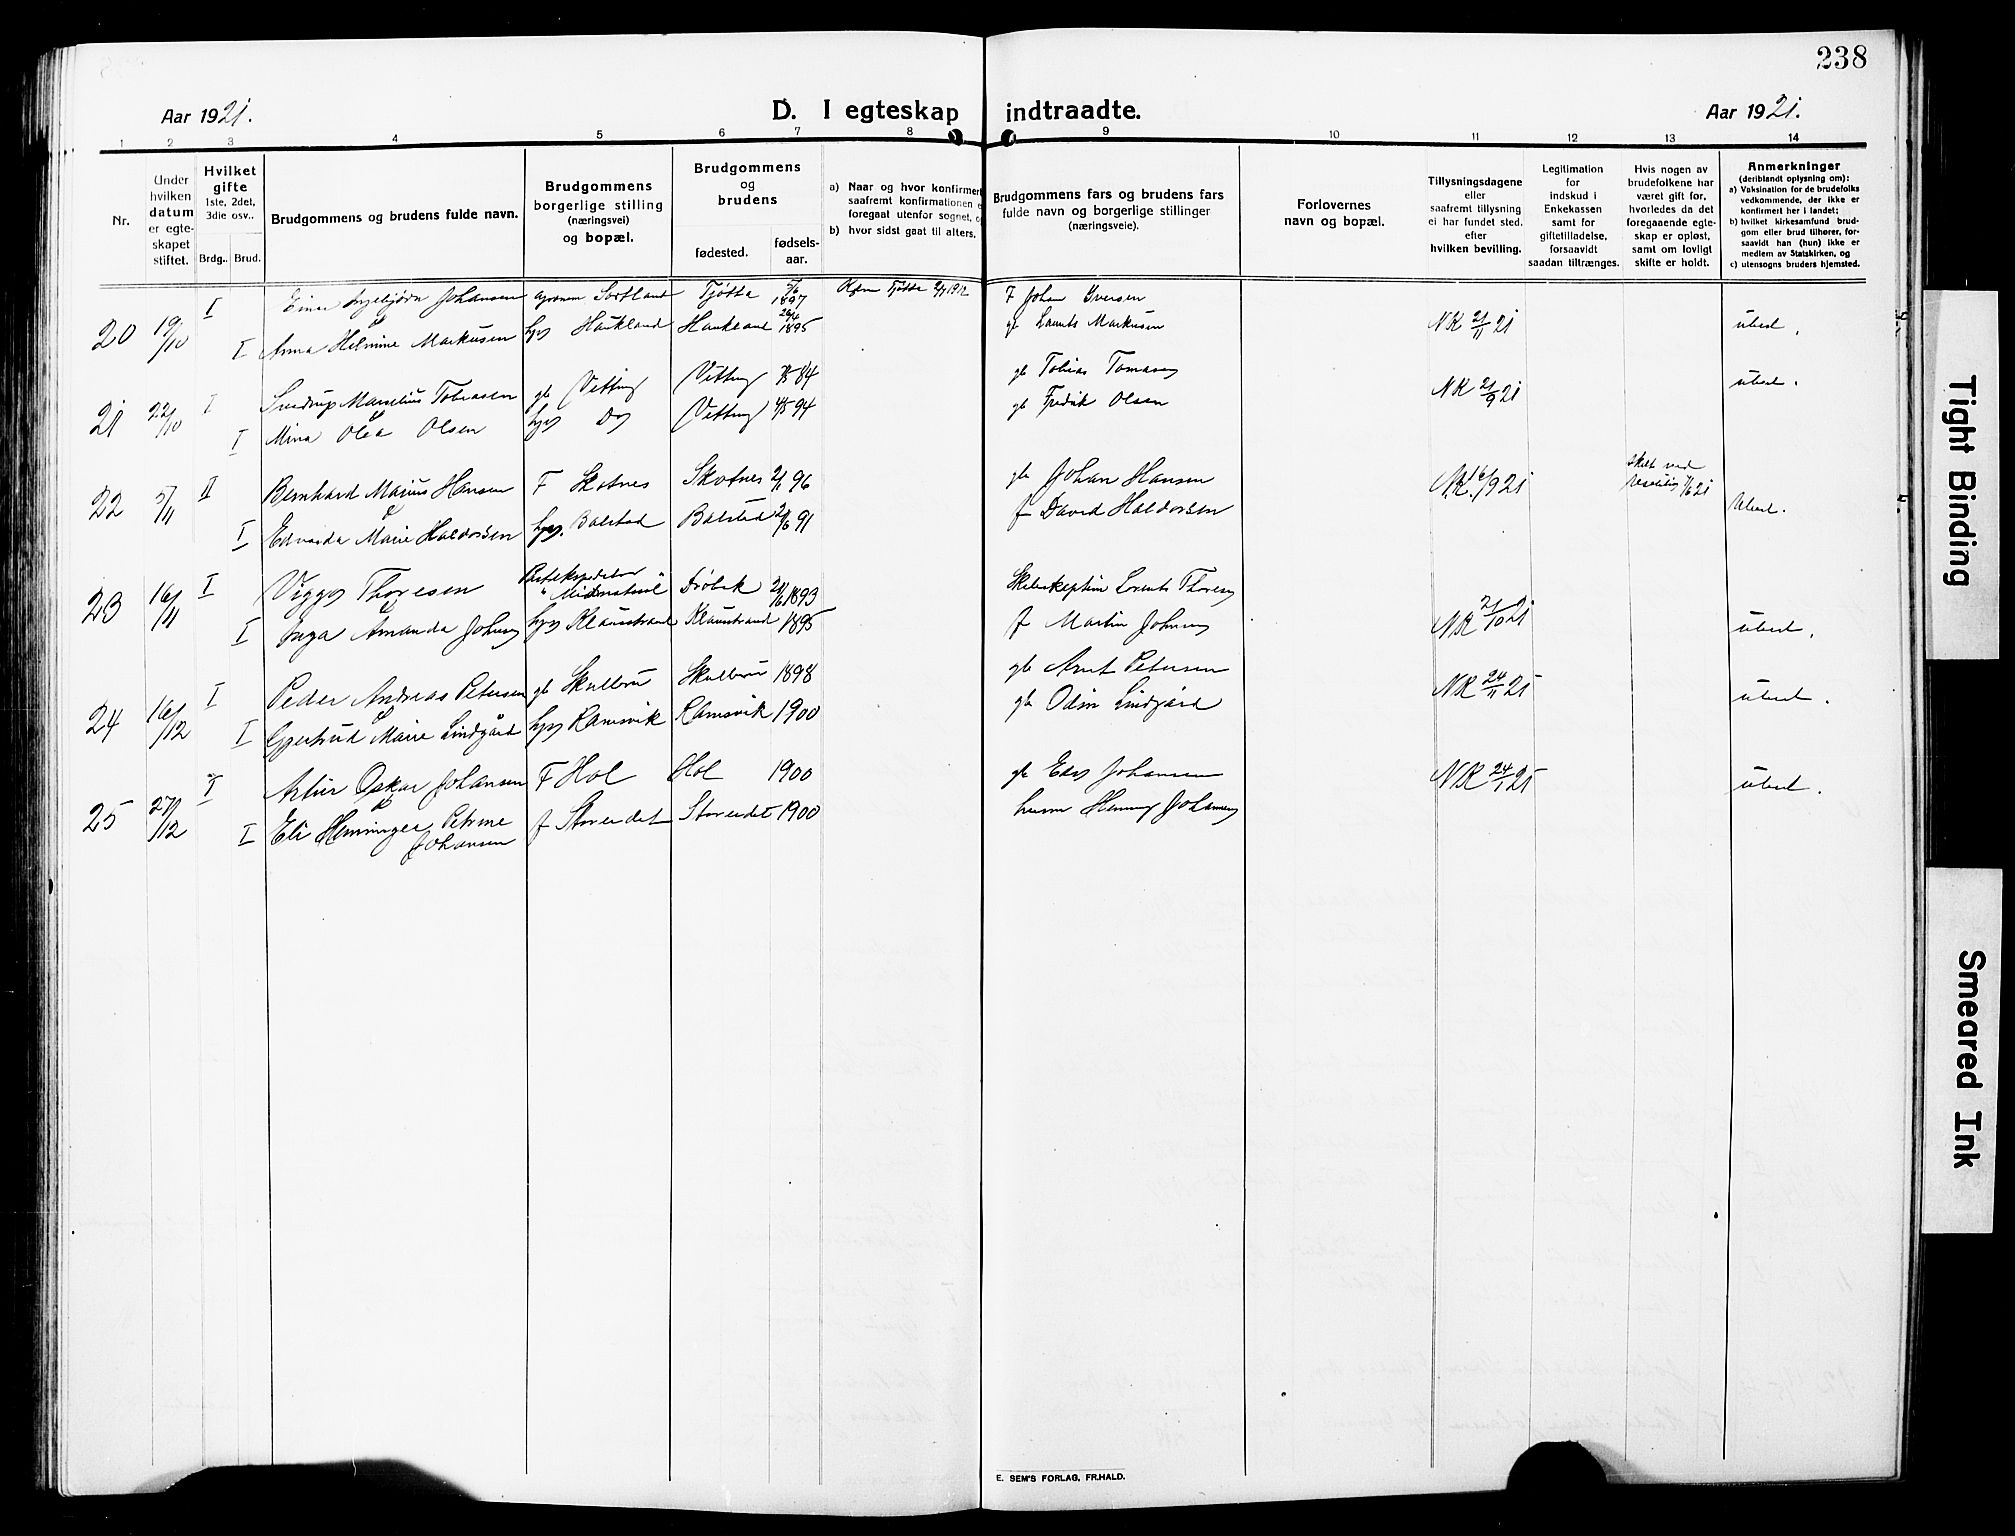 238
Aar 1921.
D. I egteskap indtraadte.
Aar 1921.
1 2 3 4 5 6 7 8 9 10 11 12 13 14
Nr.
Under hvilken datum er egteskapet stiftet.
Hvilket gifte 1ste, 2det, 3die osv..
Brdg.. Brud.
Brudgommens og brudens fulde navn.
Brudgommens borgerlige stilling (næringsvei) og bopæl.
Brudgommens og brudens
fødested.
fødselsaar.
a) Naar og hvor konfirmert
saafremt konfirmationen
foregaat utenfor sognet,
b) hvor sidst gaat til alters.
Brudgommens fars og brudens fars
fulde navn og borgerlige stillinger
(næringsveie).
Forlovernes
navn og bopæl.
Tillysningsdagene
eller
saafremt tillysning
ei har fundet sted.
efter
hvilken bevilling.
Legitimation
for
indskud i
Enkekassen
samt for
giftetilladelse,
forsaavidt
saadan tiltrænges.
Hvis nogen av
brudefolkene har
været gift før,
hvorledes da det
foregaaende egte-
skap er opløst,
samt om lovligt
skifte er holdt.
Anmerkninger
(deriblandt oplysning om):
a) Vaksination for de brudefolks
vedkommende, der ikke er
konfirmert her i landet;
b) hvilket kirkesamfund brud-
gom eller brud tilhører, for-
saavidt han (hun) ikke er
medlem av Statskirken, og
c) utensogns bruders hjemsted.
20 19/10 I Einar Ingebjørn Johansen Sortland Tjøtta 1897 Tjøtta 1912 F Johan Iversen
I Anna Helmine Markusen Haukland Haukland 1895 Laurits Markusen NK 21/11 21 ubesl.
21 22/10 I Sverdrup Marselius Tobiassen gb Vetting Vetting 84 gb Tobias NK 21/9 21 ubesl.
I Mina Olea Olsen Do Vetting 4/5 94 gb Fredrik Olsen
22 5/11 II Bernhard Marius Hansen F Skotnes Skotnes 96 gb Johan Hansen NK 16/9 21 skilt ved 21
I Edvarda Marie Haldorsen Balstad Balstad 91 f David Haldorsen Ubesl.
23 16/11 I Viggo Thoresen Drøbak 1893 Lorents
I Inga Amanda Klaustrand Klaustrand 1895 f Martin NK 21/10 21 ubesl.
24 16/12 I Peder Andreas Petersen gb Skulbru Skulbru 1898 gb Arnt Petersen NK 24/11 21 ubesl.
I Gjertrud Marie Lindgård Ramsvik Ramsvik 1900 gb Odin Lindgård
25 27/12 I Artur Oskar Johansen F Hol Hol 1900 gb Johansen NK 24/ 21 ubesl.
I Eli Henninger Petrine Johansen f Storeidet Storeidet 1900 Henning
E. SEM'S FORLAG, FR.HALD.
Tight Binding
Smeared Ink